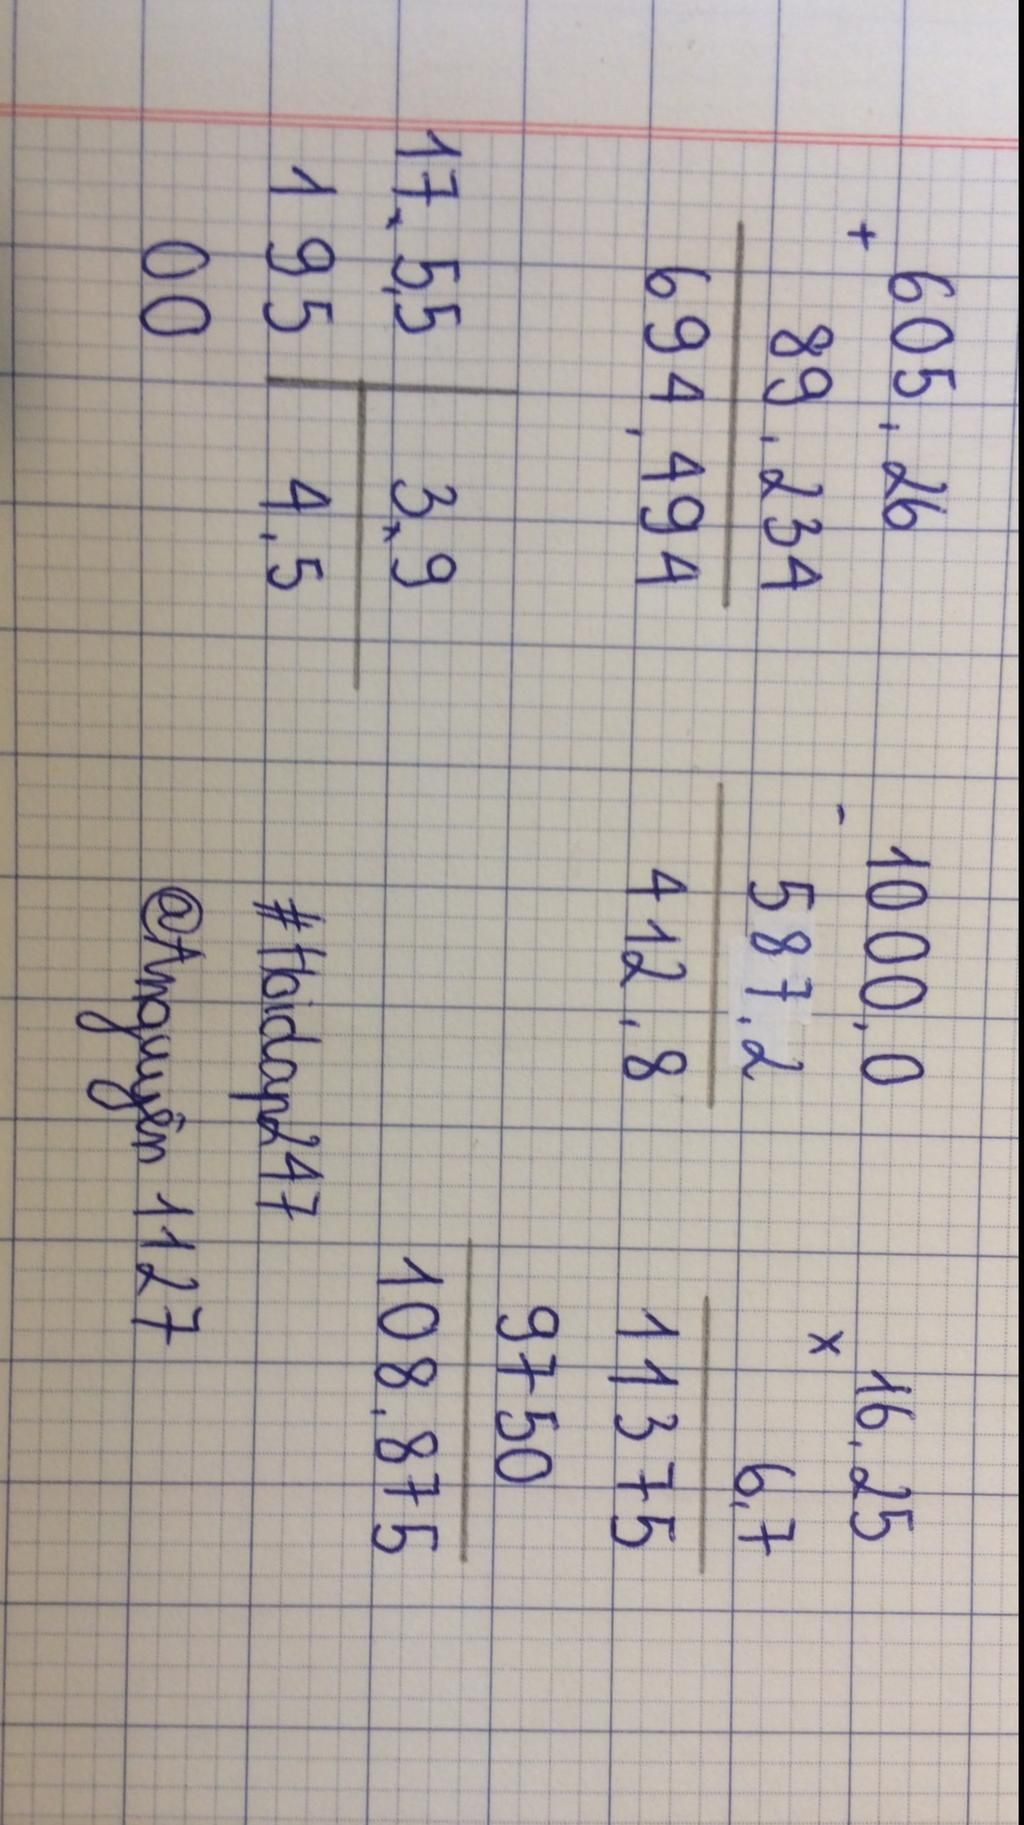 605,26
+
89,234
694,494
1000,0
-
587,2
412,8
16,25
x
6,7
11375
9750
108,875
17,5,5 3,9
195 4,5
00
#Hoidap247
@Anguyên1127